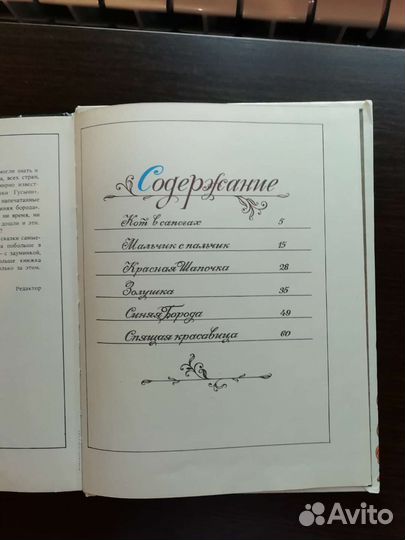 могли знать и
всех стран,
Гусыни».
напечатанные
няя борода».
ни время, ни
дошли и эти.
сказки самые-
побольше в
с заумникой,
больше книжка
только за этом.
Редактор
Содержание
Кот в сапогах 5
Мальчик с пальчик 15
Красная Шапочка 28
Золушка 35
Синяя Борода 49
Спящая красавица 60
Avito